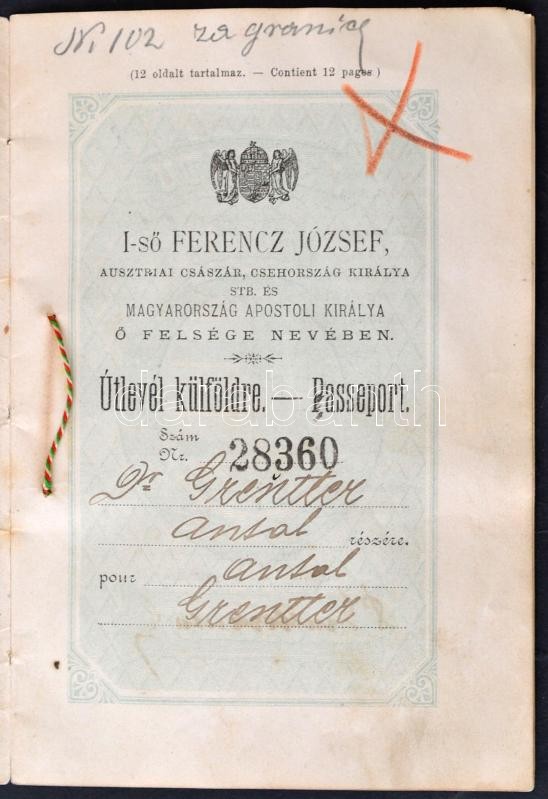 N. 102 za granicu
(12 oldalt tartalmaz. — Contient 12 pages.)
I-ső FERENCZ JÓZSEF,
AUSZTRIAI CSÁSZÁR, CSEHORSZÁG KIRÁLYA
STB. ÉS
MAGYARORSZÁG APOSTOLI KIRÁLYA
Ő FELSÉGE NEVÉBEN.
Útlevél külföldre. — Passeport.
Szám
Nr. 28360
Dr Grentter
Antal részére.
pour Antal
Grentter
darabanth